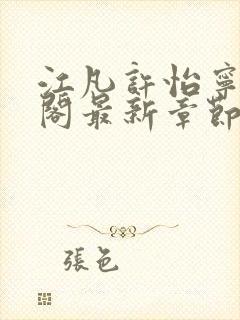 江凡許怡寧
閣最新章節
張色